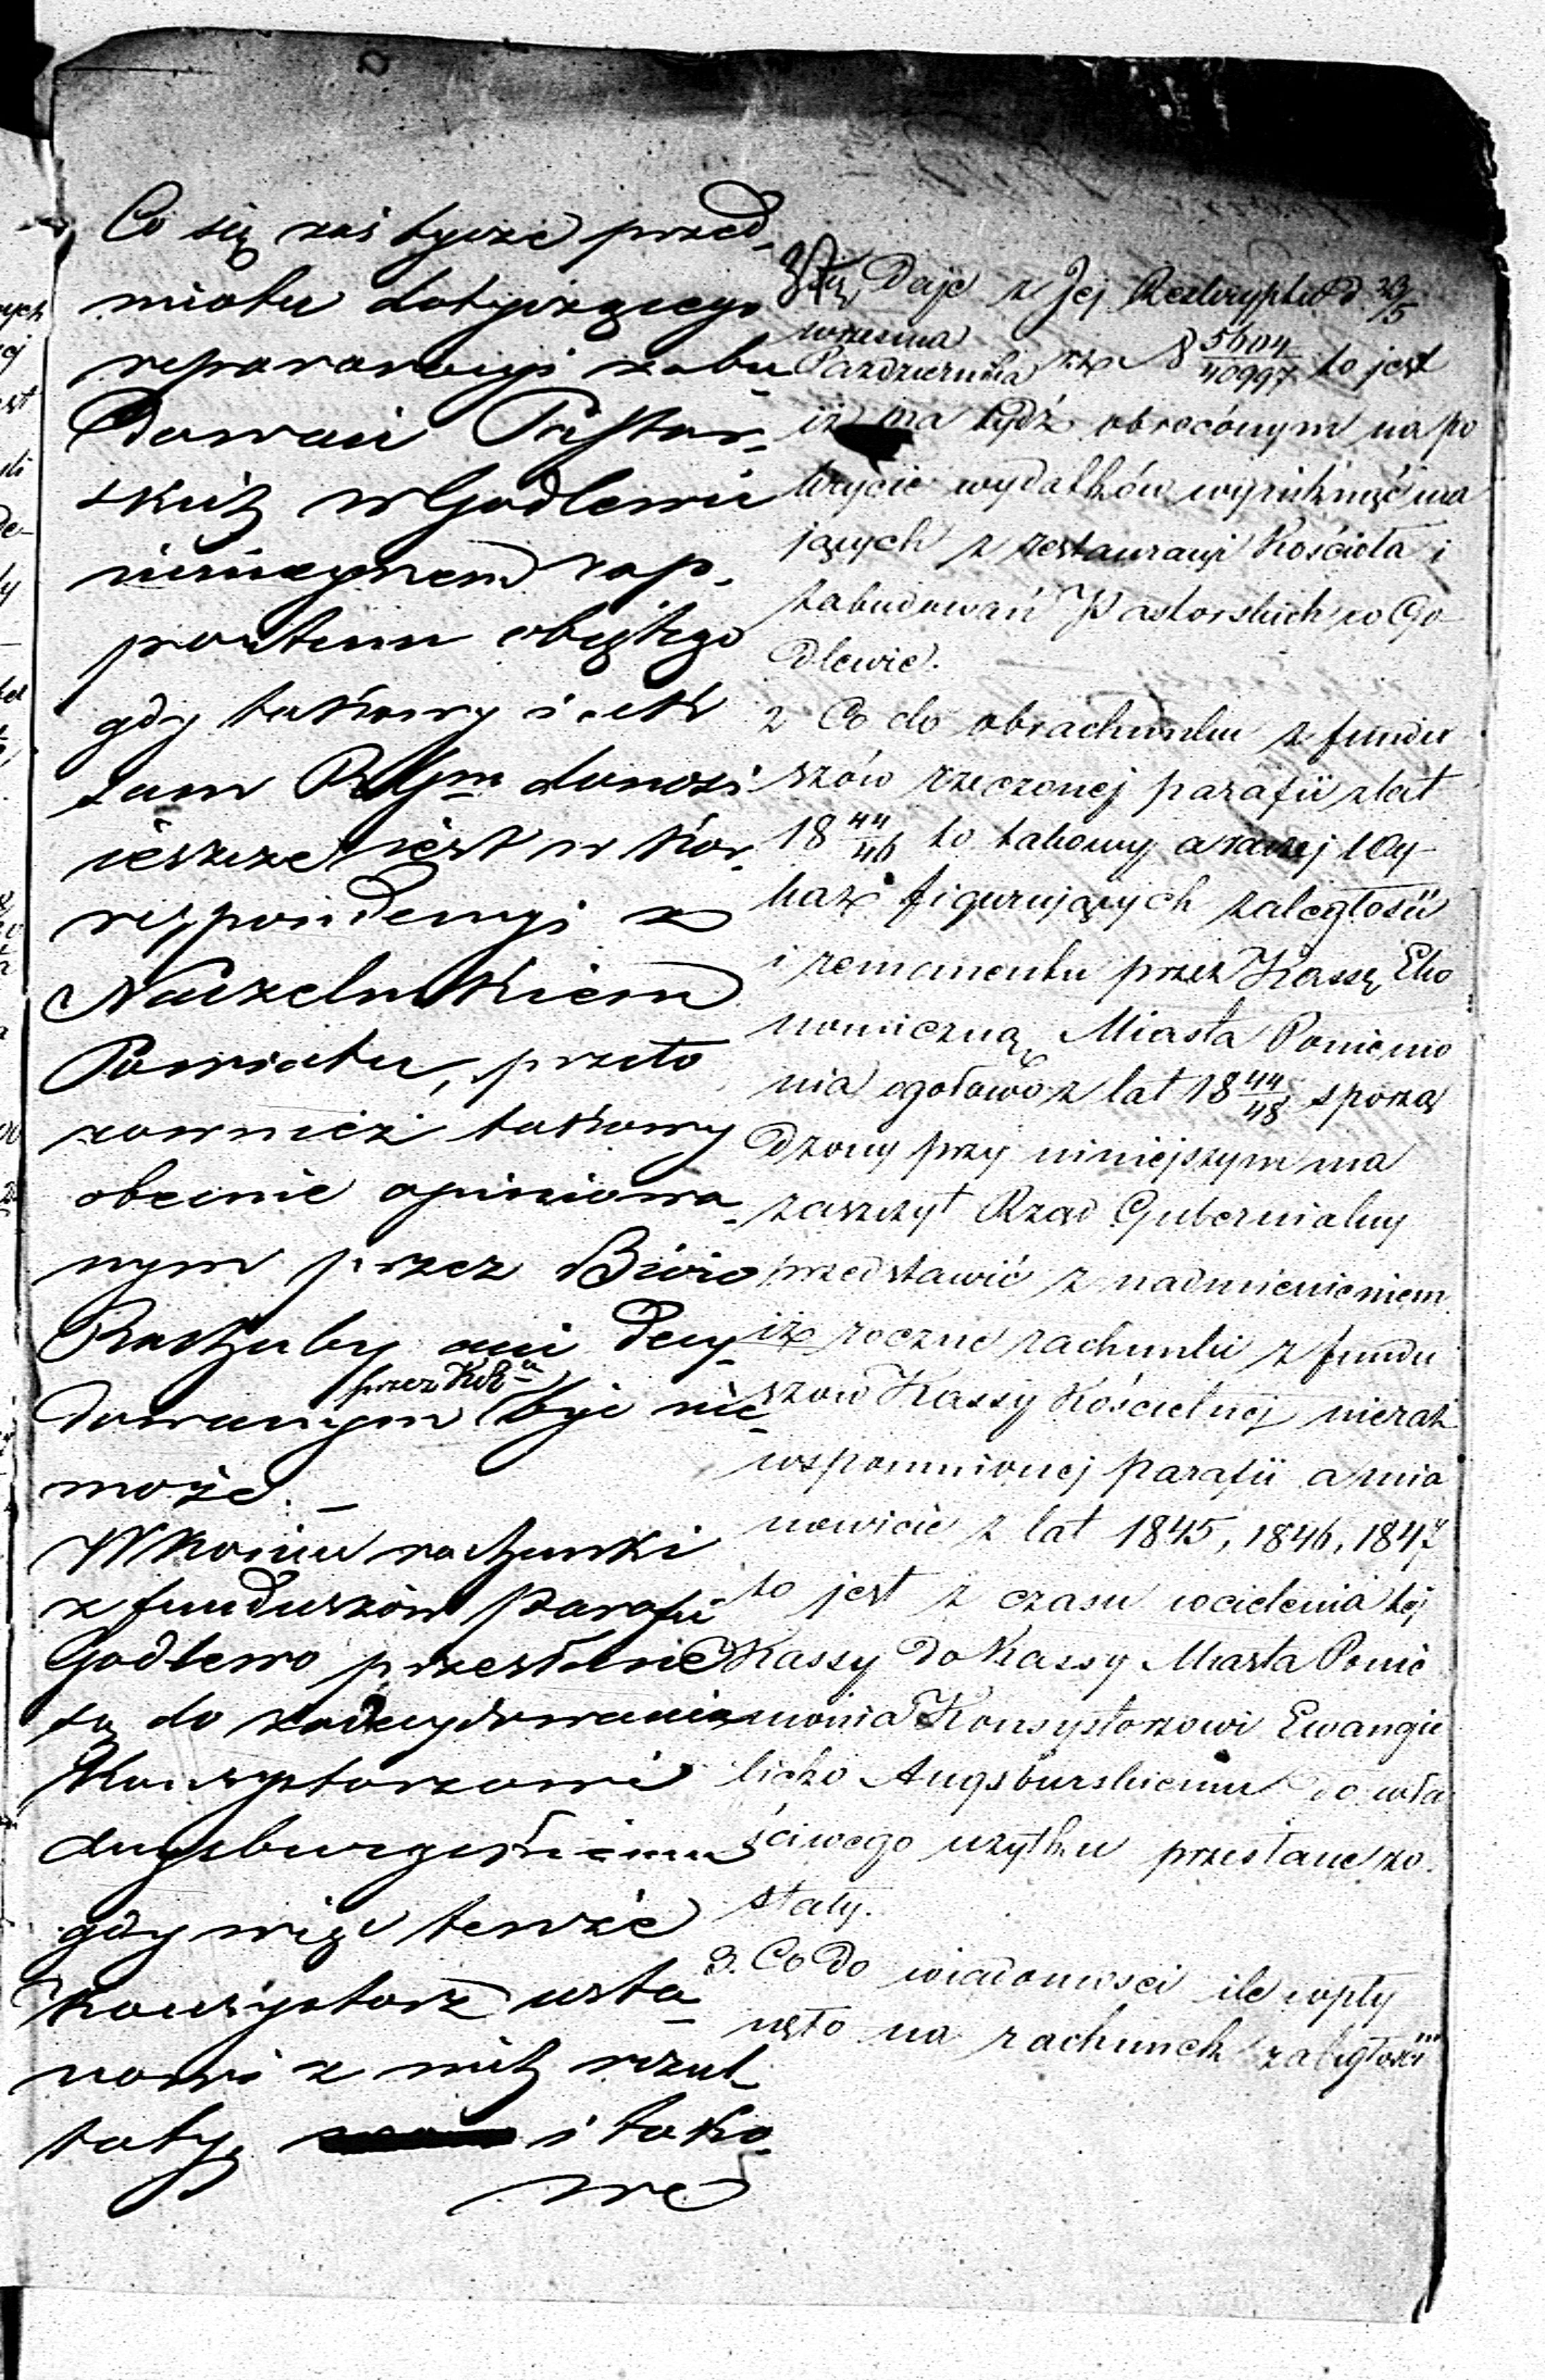 Co się zaś tycze przed-
miotu dotyczącego
reparacyi zabu-
dowań Pastor-
skich w Godlewie
niniejszym rap-
portem objętego
gdy takowy jak
sam donosi
ieszcze iest w kor-
respondencyi z
Naczelnikiem
Powiatu, przeto
rownież takowy
obecnie opiniowa-
nym przez Biuro
Rachuby ani decy-
przez
dowanym być nie-
może. —
W końcu rachunki
z funduszów Parafii
Godlewo przesłane
są do zadecydowania
Konsystorzowi
Augsburgskiemu
gdy więc tenże
Konsystorz usta-
nowi z nich rezul-
taty i tako-
we
Daje z Jej Reskryptu d 23/5
września
Października 5604/40997 to jest
iż ma bydź obrócónym na po
krycie wydatków wyniknąć ma
jących z restauracyi Kościoła i
zabudowań Pastorskich w Go-
dlewie.
2 Co do obrachunku z fundu
szów rzeczonej parafii z lat
18 44/46 to takowy a raczej Wy-
kaz figurujących zaległosii
i remanentu przez Kassę Eko
nomiczną Miasta Poniemo
nia ogołowo z lat 18 44/48 sporzą
dzony przy niniejszym ma
zaszczyt Rząd Gubernialny
przedstawić z nadmienieniem
iż roczne rachunki z fundu
szow Kassy Kościelnej
wspomnionej parafii a mia
nowicie z lat 1845, 1846, 1847
to jest z czasu wcielenia tej
Kassy do Kassy Miasta Ponie
monia Konsystorzowi Ewangie
licko Augsburskiemu do wła
ściwego użytku przesłane zo-
stały.
3. Co do wiadomosci ile wpły
nęło na rachunek zaległości